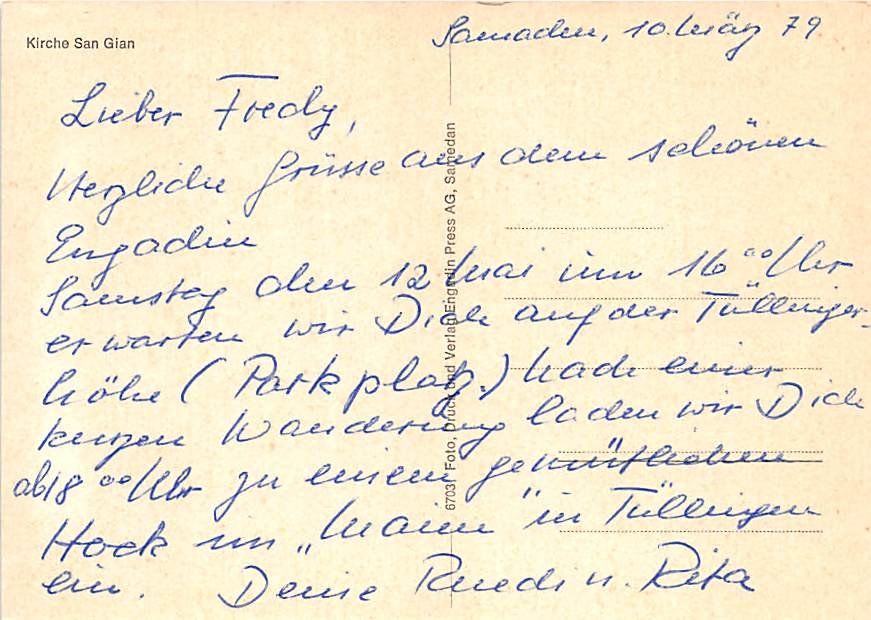 Kirche San Gian
Samaden, 10. März 79
Lieber Fredy,
Herzliche Grüsse aus dem schönen
Engadin
Samstag den 12 Mai um 16⁰⁰ Uhr
erwarten wir Dich auf der Tüllinger-
höhe (Parkplatz.) Nach einer
kurzen Wanderung laden wir Dich
ab 18⁰⁰ Uhr zu einem gemütlichen
Hock im „Maien" in Tüllingen
ein. Deine Ruedi u. Rita
6703 Foto, Druck und Verlag Engadin Press AG, Samedan